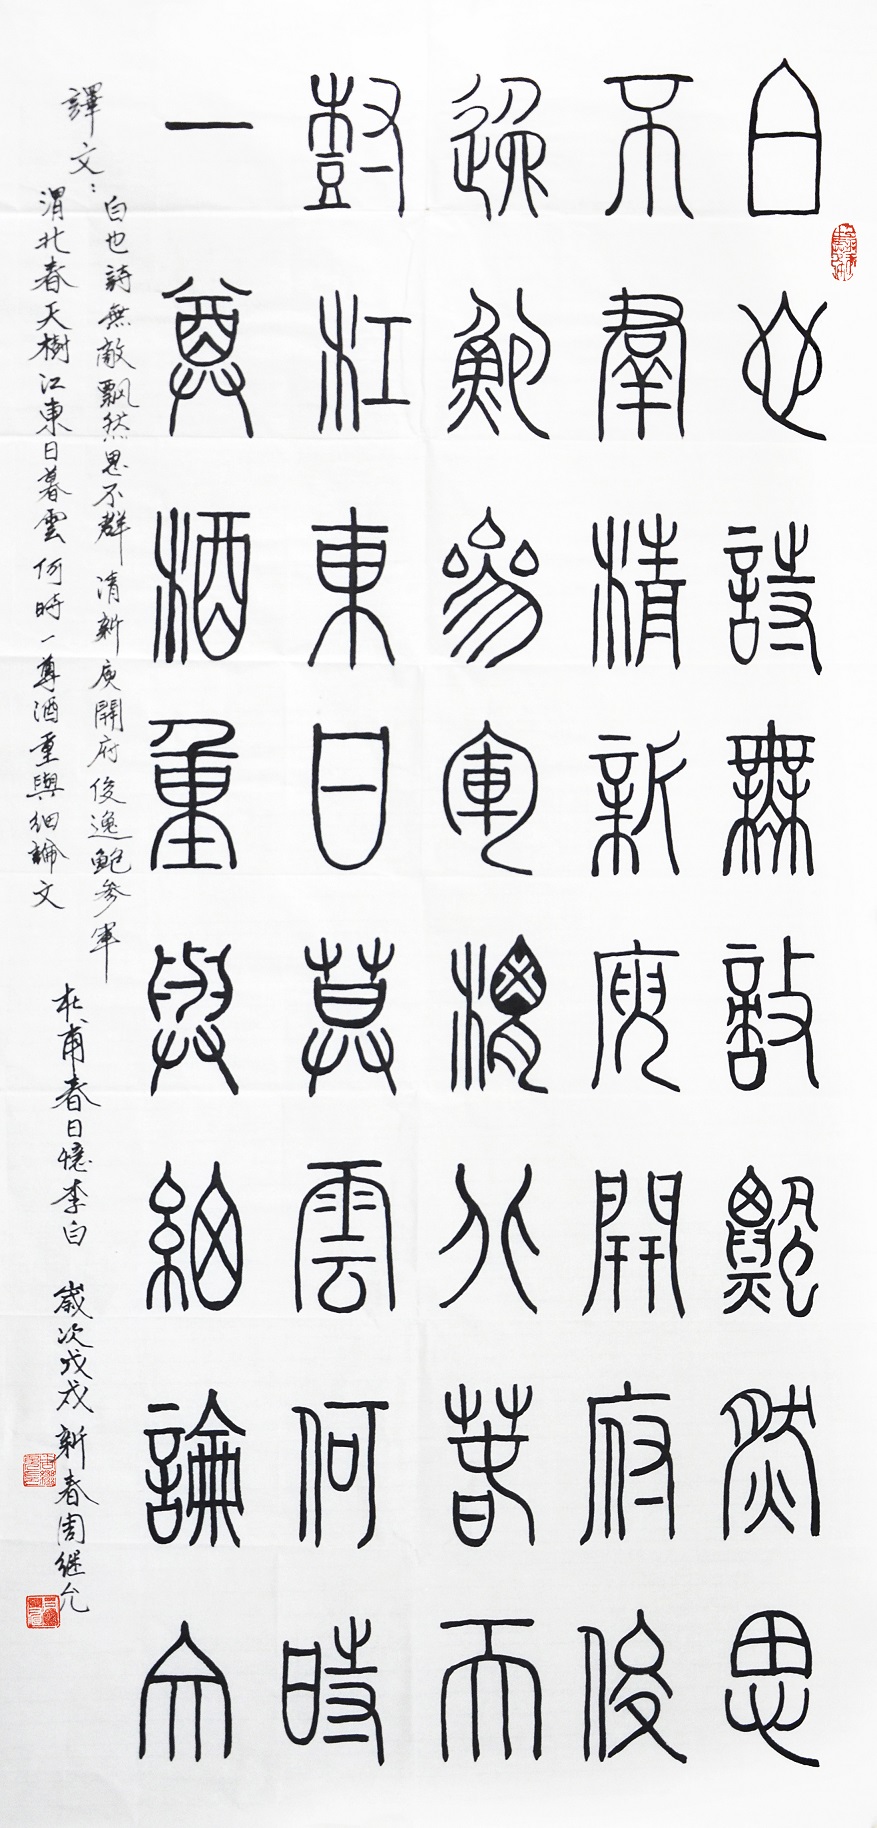 白也詩無敵飄然思
不羣清新庾開府俊
逸鮑參軍渭北春天
樹江東日莫雲何時
一尊酒重與細論文
譯文：
白也詩無敵飄然思不群 清新庾開府俊逸鮑参軍
渭北春天樹江東日暮雲何時一尊酒重與細論文
杜甫春日憶李白 歲次戊戌新春周继允